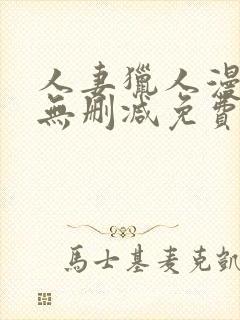 人妻獵人漫
無刪減免費
馬士基麥克凱